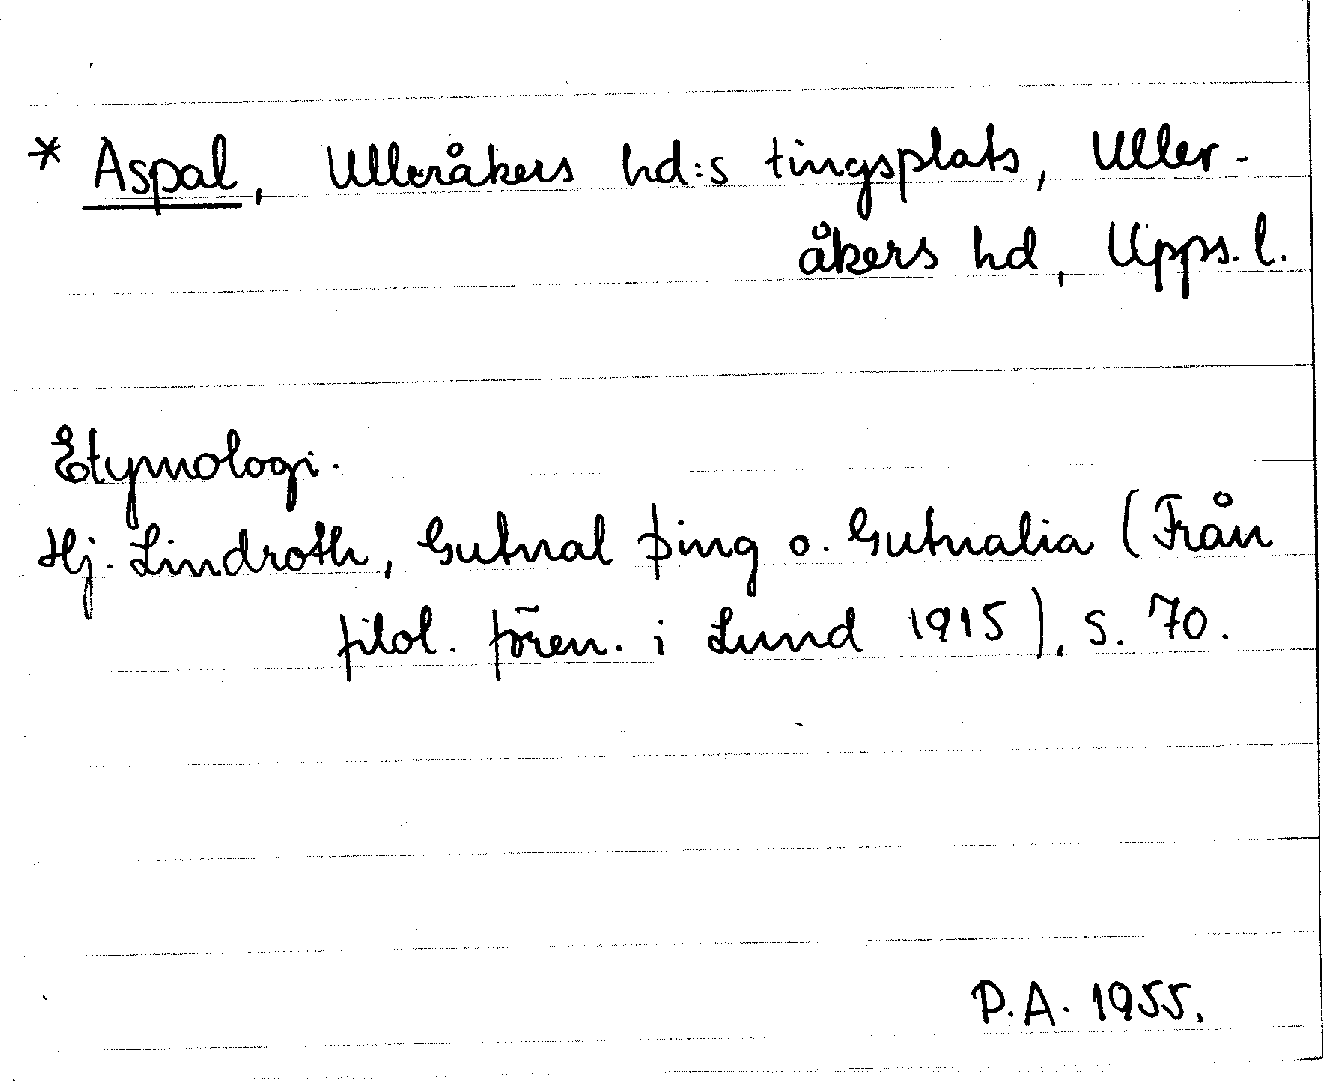 * Aspal, Ulleråkers hd:s tingsplats, Uller-
åkers hd, Upps. l.
Etymologi.
Hj. Lindroth, Gutnal þing o. Gutnalia (Från
filol. fören. i Lund 1915), s. 70.
P.A. 1955.